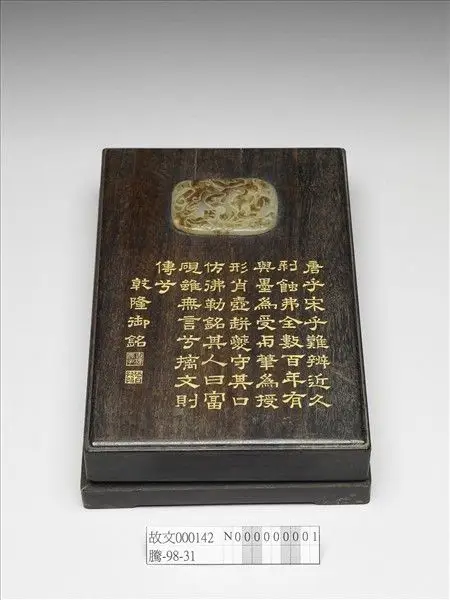 唐乎宋乎難辨近久
刓蝕弗全數百年有
與墨為受而筆為授
形肖壺缾守其口
仿彿勒銘其人曰富
硯雖無言兮摛文則
傳兮
乾隆御銘
故文000142 N000000001
騰-98-31